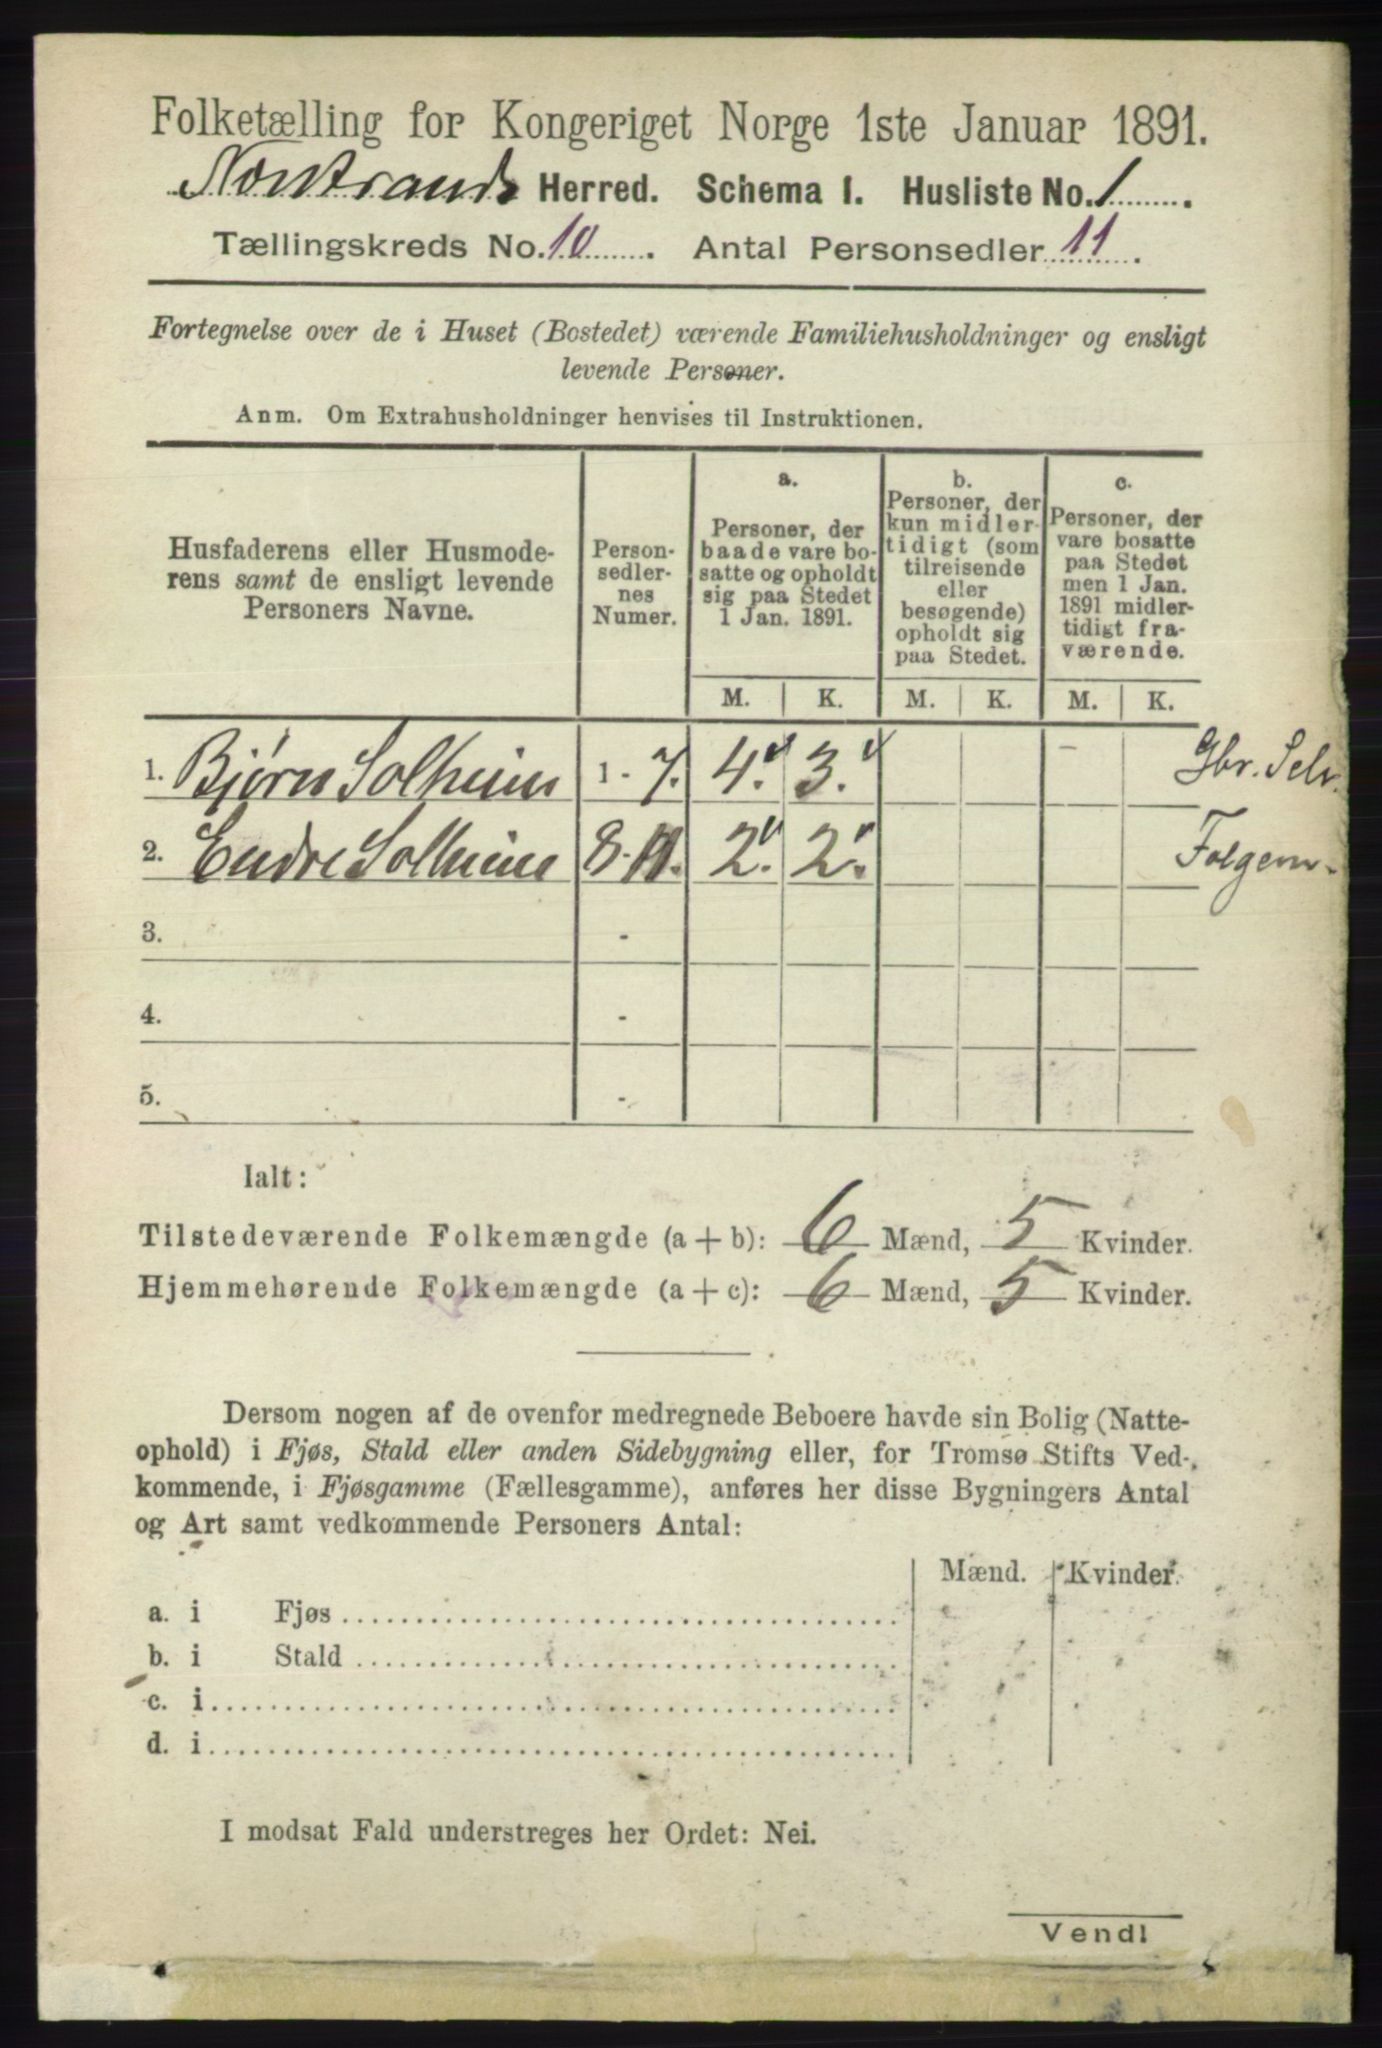 Folketælling for Kongeriget Norge 1ste Januar 1891.
Nærstrands Herred. Schema I. Husliste No. 1
Tællingskreds No. 10. Antal Personsedler 11.
Fortegnelse over de i Huset (Bostedet) værende Familiehusholdninger og ensligt
levende Personer.
Anm. Om Extrahusholdninger henvises til Instruktionen.
Husfaderens eller Husmode-
rens samt de ensligt levende
Personers Navne.
Person-
sedler-
nes
Numer.
a.
Personer, der
baade vare bo-
satte og opholdt
sig paa Stedet
1 Jan. 1891.
b.
Personer, der
kun midler-
tidigt (som
tilreisende
eller
besøgende)
opholdt sig
paa Stedet.
c.
Personer, der
vare bosatte
paa Stedet
men 1 Jan.
1891 midler-
tidigt fra-
værende.
M. K. M. K. M. K.
1. Bjørn Solheim 1 - 7. 4. 3. Gbr. Selv.
2. Endre Solheim 8-11. 2. 2. Folgem.
3. -
4. -
5. -
Ialt:
Tilstedeværende Folkemængde (a + b): 6 Mænd, 5 Kvinder.
Hjemmehørende Folkemængde (a + c): 6 Mænd, 5 Kvinder.
Dersom nogen af de ovenfor medregnede Beboere havde sin Bolig (Natte-
ophold) i Fjøs, Stald eller anden Sidebygning eller, for Tromsø Stifts Ved-
kommende, i Fjøsgamme (Fællesgamme), anføres her disse Bygningers Antal
og Art samt vedkommende Personers Antal:
Mænd. Kvinder.
a. i Fjøs
b. i Stald
c. i
d. i
I modsat Fald understreges her Ordet: Nei.
Vend!